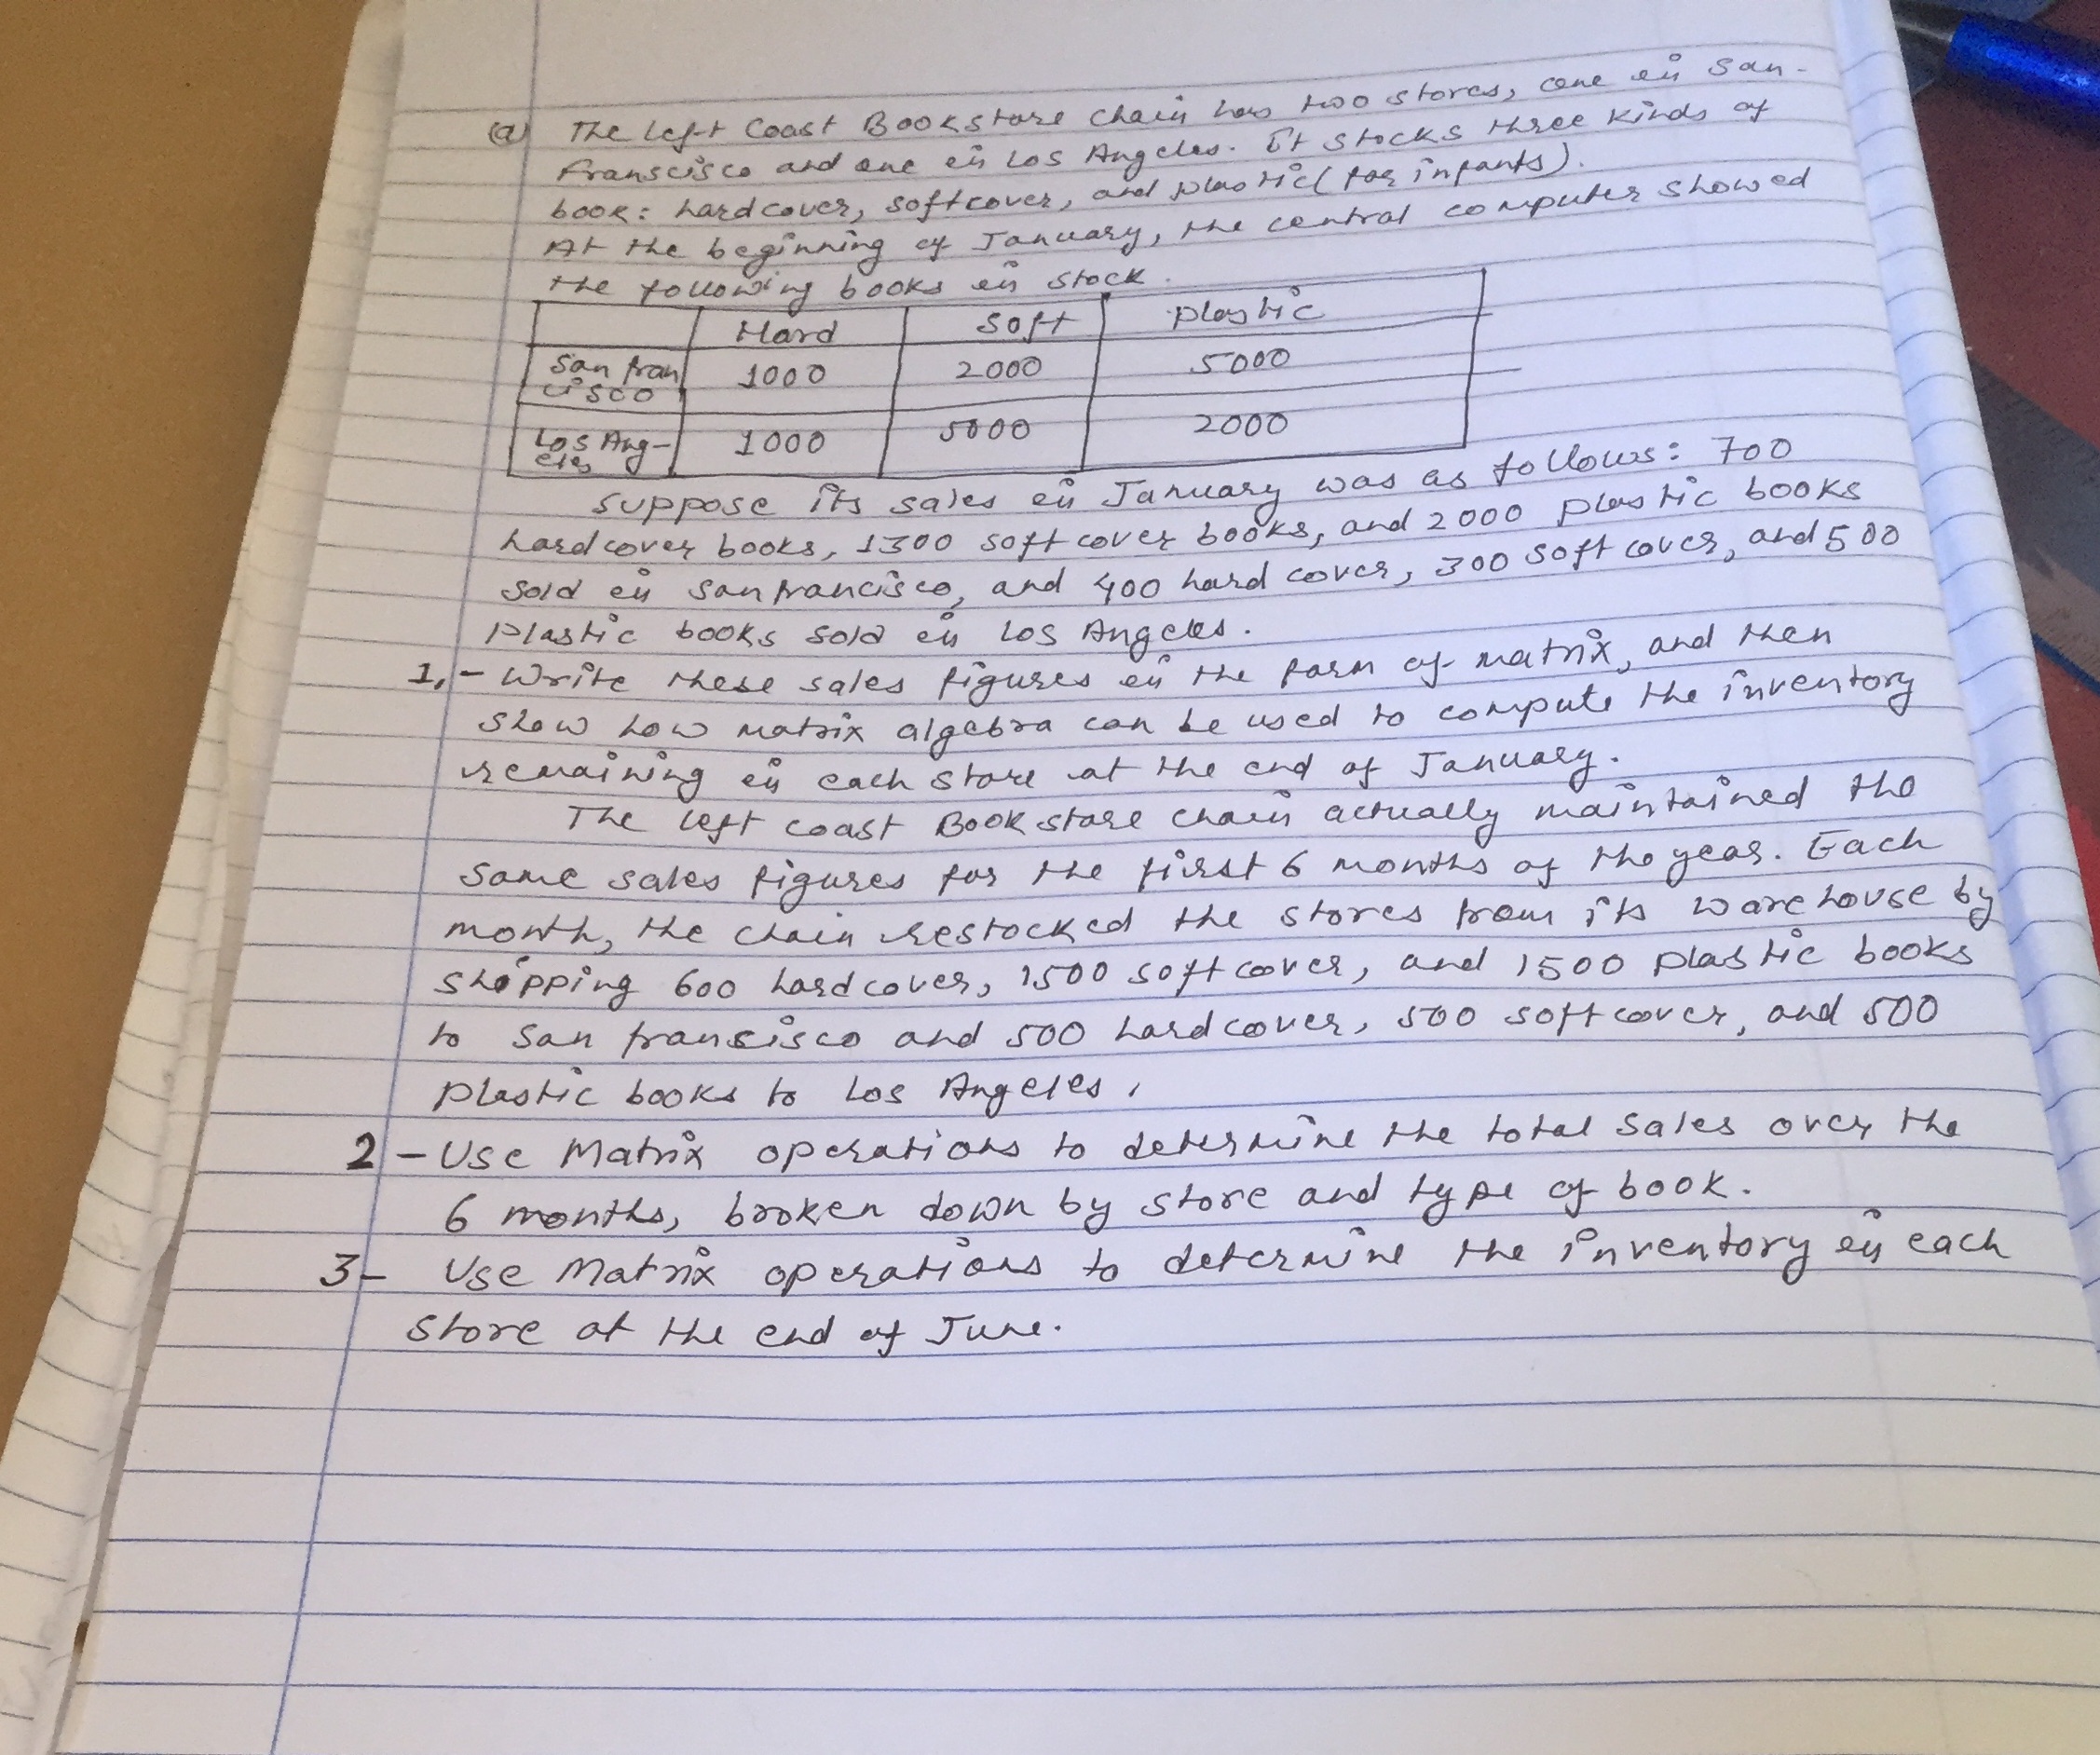 (a) The Left Coast Bookstore chain has two stores, one in San-
Franscisco and one in Los Angeles. It stocks three kinds of
book: hardcover, softcover, and plastic (for infants).
At the beginning of January, the central computer showed
the following books in stock.
Hard Soft plastic
San fran
cisco 1000 2000 5000
Los Ang-
eles 1000 5000 2000
Suppose its sales in January was as follows: 700
hardcover books, 1300 softcover books, and 2000 plastic books
sold in San francisco, and 400 hard cover, 300 soft cover, and 500
plastic books sold in Los Angeles.
1,- Write these sales figures in the form of matrix, and then
show how matrix algebra can be used to compute the inventory
remaining in each store at the end of January.
The left coast Book store chain actually maintained the
same sales figures for the first 6 months of the year. Each
month, the chain restocked the stores from its warehouse by
shipping 600 hardcover, 1500 softcover, and 1500 plastic books
to San fransisco and 500 hardcover, 500 softcover, and 500
plastic books to Los Angeles.
2 - Use Matrix operations to determine the total sales over the
6 months, broken down by store and type of book.
3- Use Matrix operations to determine the inventory in each
store at the end of June.